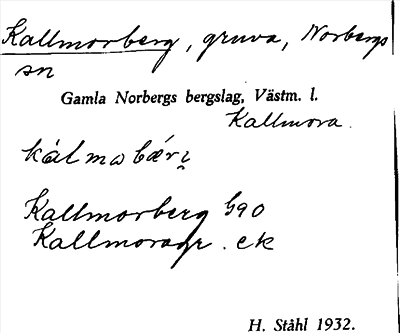 Kallmorberg, gruva, Norbergs
sn
Gamla Norbergs bergslag, Västm. l.
Kallmora.
Kallmorberg G90
Kallmoragr. ek
H. Ståhl 1932.